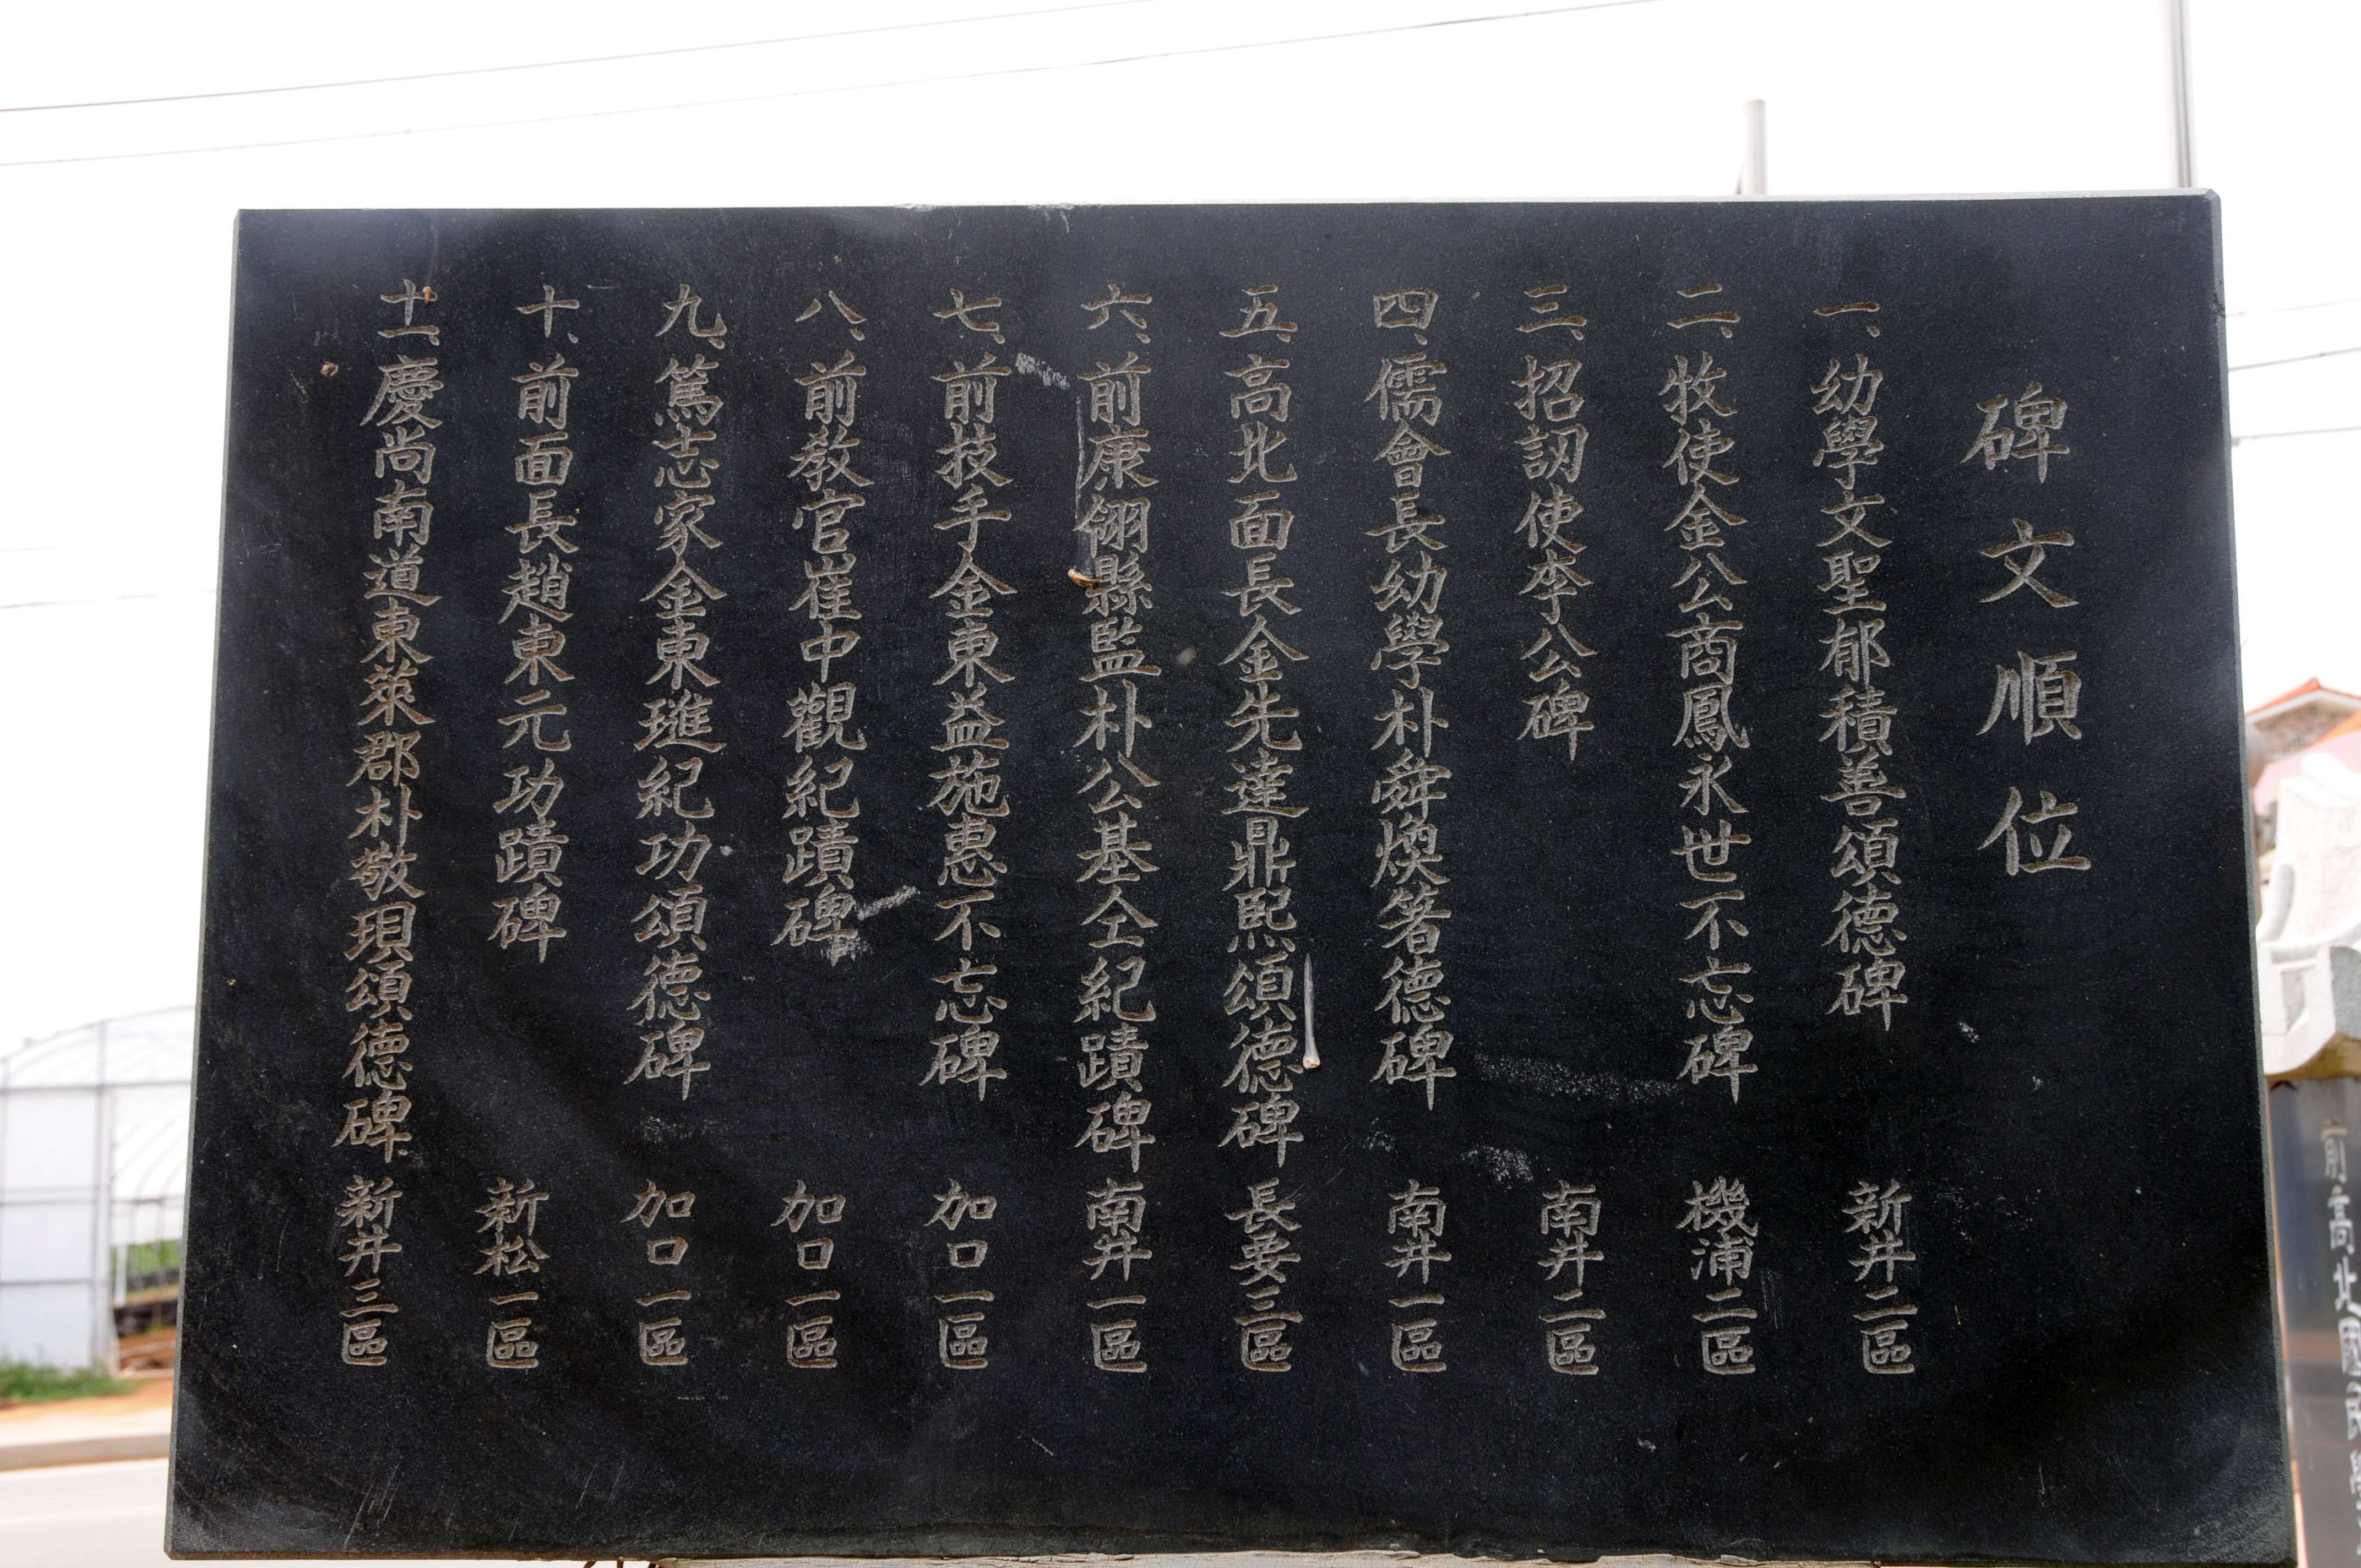 碑文順位
一、幼學文聖郁積善頌德碑 新井二區
二、牧使金公商鳳永世不忘碑 機浦二區
三、招諭使李公碑 南井二區
四、儒會長幼學朴舜煥著德碑 南井一區
五、高北面長金先達鼎熙頌德碑 長要三區
六、前康翎縣監朴公基仝紀蹟碑 南井一區
七、前技手金東益施惠不忘碑 加口一區
八、前敎官崔中觀紀蹟碑 加口一區
九、篤志家金東璡紀功頌德碑 加口一區
十、前面長趙東元功蹟碑 新松一區
十一、慶尚南道東萊郡朴敬現頌德碑 新井三區
前高北面